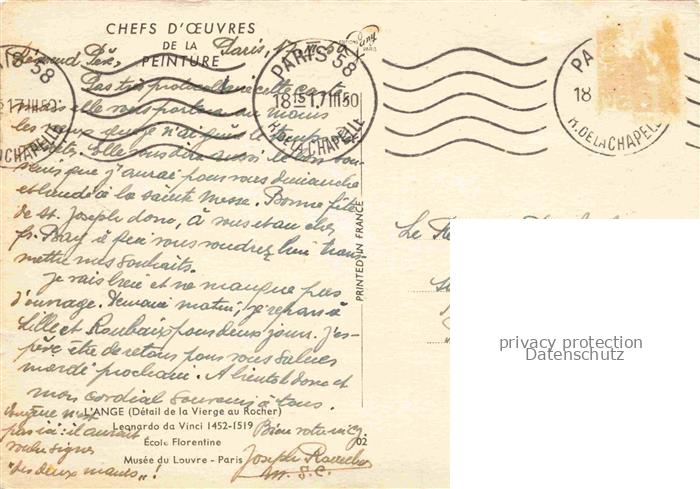 CHEFS D'ŒUVRES
DE LA
PEINTURE
Paris, 17.III.50
PARIS 58
18 15 17 III 50
R. DE LA CHAPELLE
PA
18
R. DE LA CHAPELLE
Révérend Père,
Pas très protocolaire cette carte
mais elle vous portera au moins
les vœux que je n'ai
elle vous dira aussi le bon sou-
venir que j'aurai pour vous dimanche
et lundi à la sainte Messe. Bonne fête
de St. Joseph donc, à vous et au cher
fr. à qui vous voudrez bien trans-
mettre mes souhaits.
je vais bien et ne manque pas
d'ouvrage. Demain matin, je repars à
Lille et Roubaix pour deux jours. J'es-
père être de retour pour vous saluer
mardi prochain. A bientôt donc et
mon cordial souvenir à tous.
Bien vôtre
Joseph
M. S. C.
n'est
pas ici: il aurait
voulu signer
"des deux mains"!
L'ANGE (Détail de la Vierge au Rocher)
Leonardo da Vinci 1452-1519
École Florentine
Musée du Louvre - Paris
02
PRINTED IN FRANCE
Le
privacy protection
Datenschutz